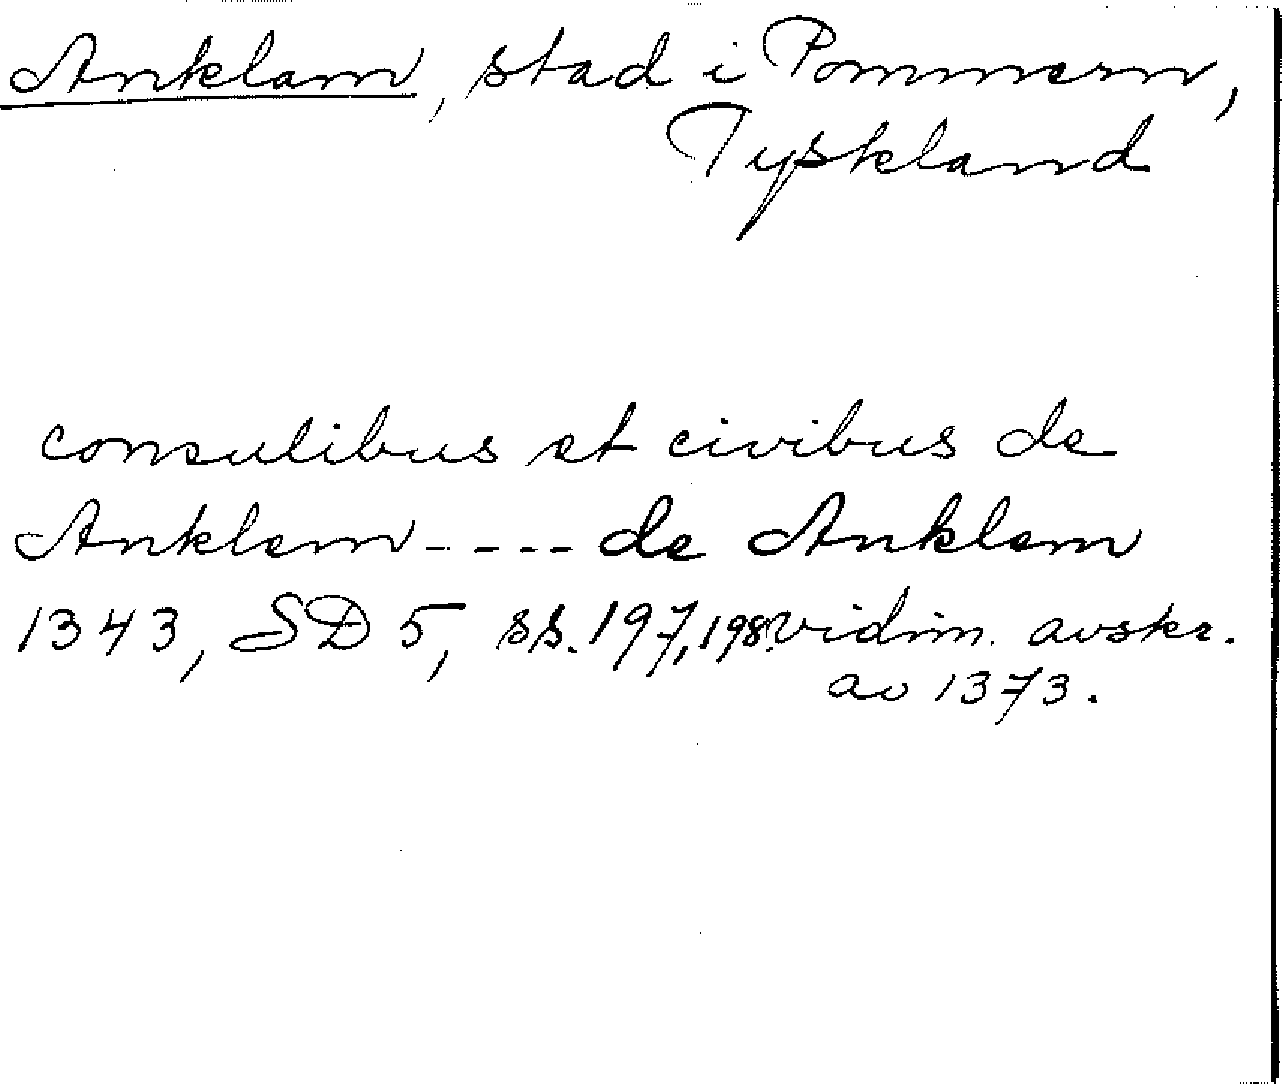 Anklam, stad i Pommern,
Tyskland
consulibus et civibus de
Anklem---- de Anklem
1343, SD 5, ss. 197, 198. vidim. avskr.
av 1373.